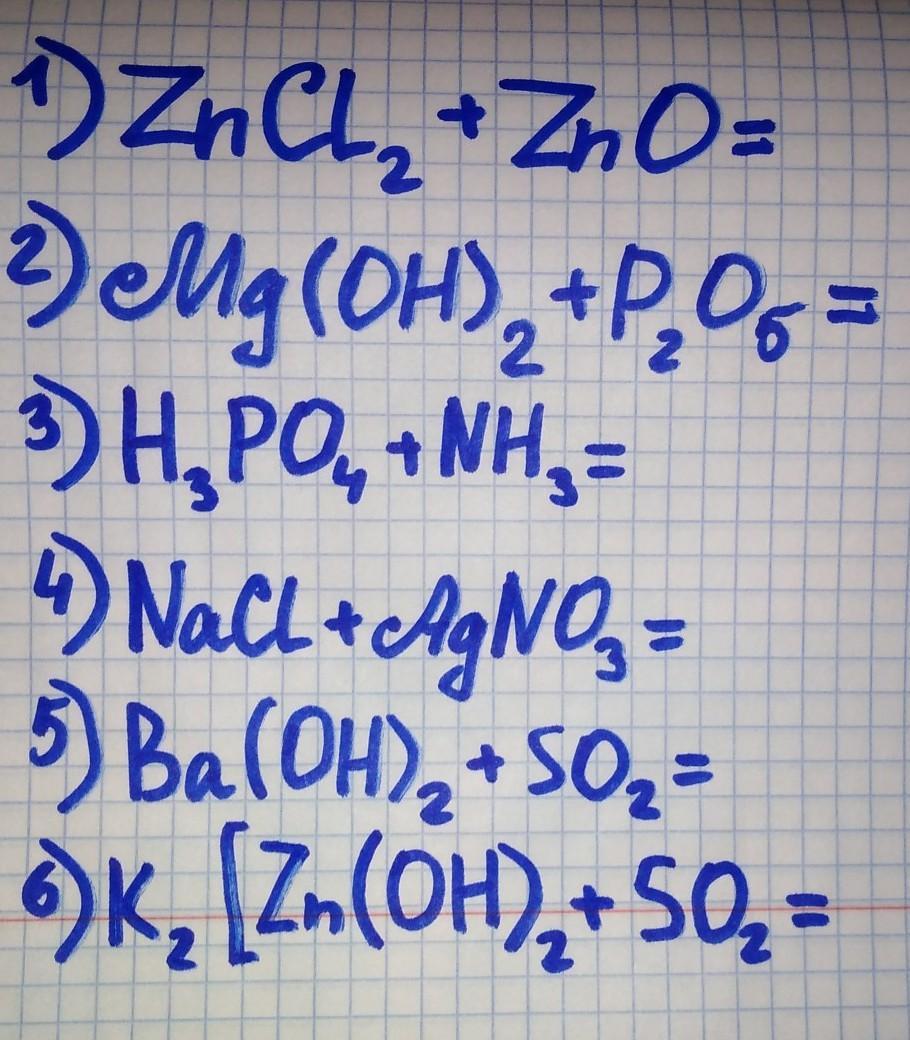 1) ZnCl₂ + ZnO =
2) Mg(OH)₂ + P₂O₅ =
3) H₃PO₄ + NH₃ =
4) NaCl + AgNO₃ =
5) Ba(OH)₂ + SO₂ =
6) K₂[Zn(OH)₂ + SO₂ =